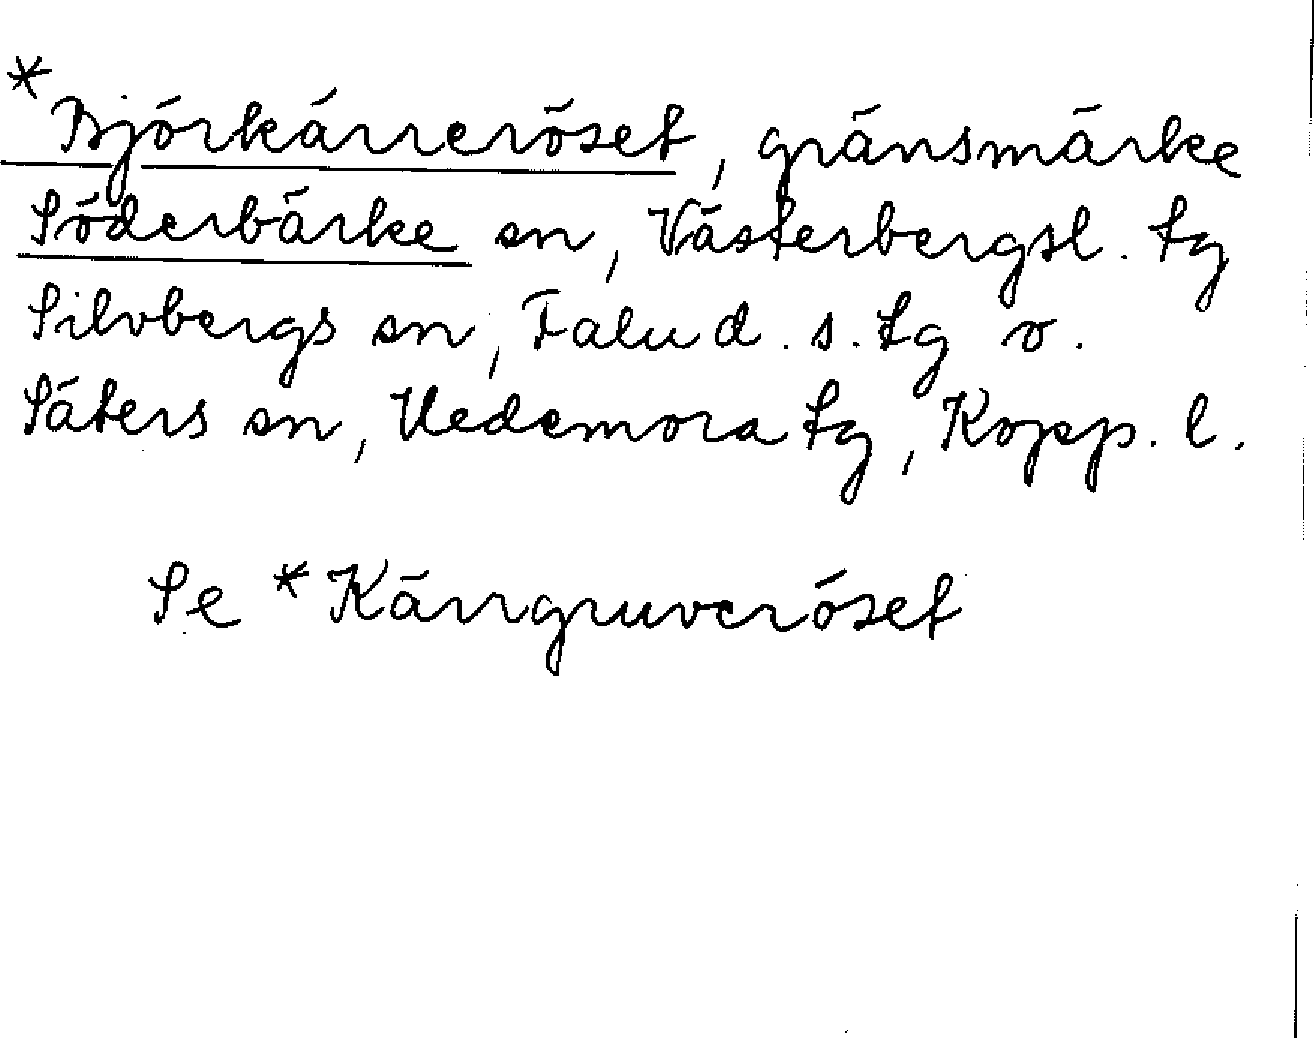 *Björkärreröset, gränsmärke
Söderbärke sn, Västerbergsl. tg
Silvbergs sn, Falu d. s. tg o.
Säters sn, Hedemora tg, Kopp. l.
Se *Kärrgruveröset